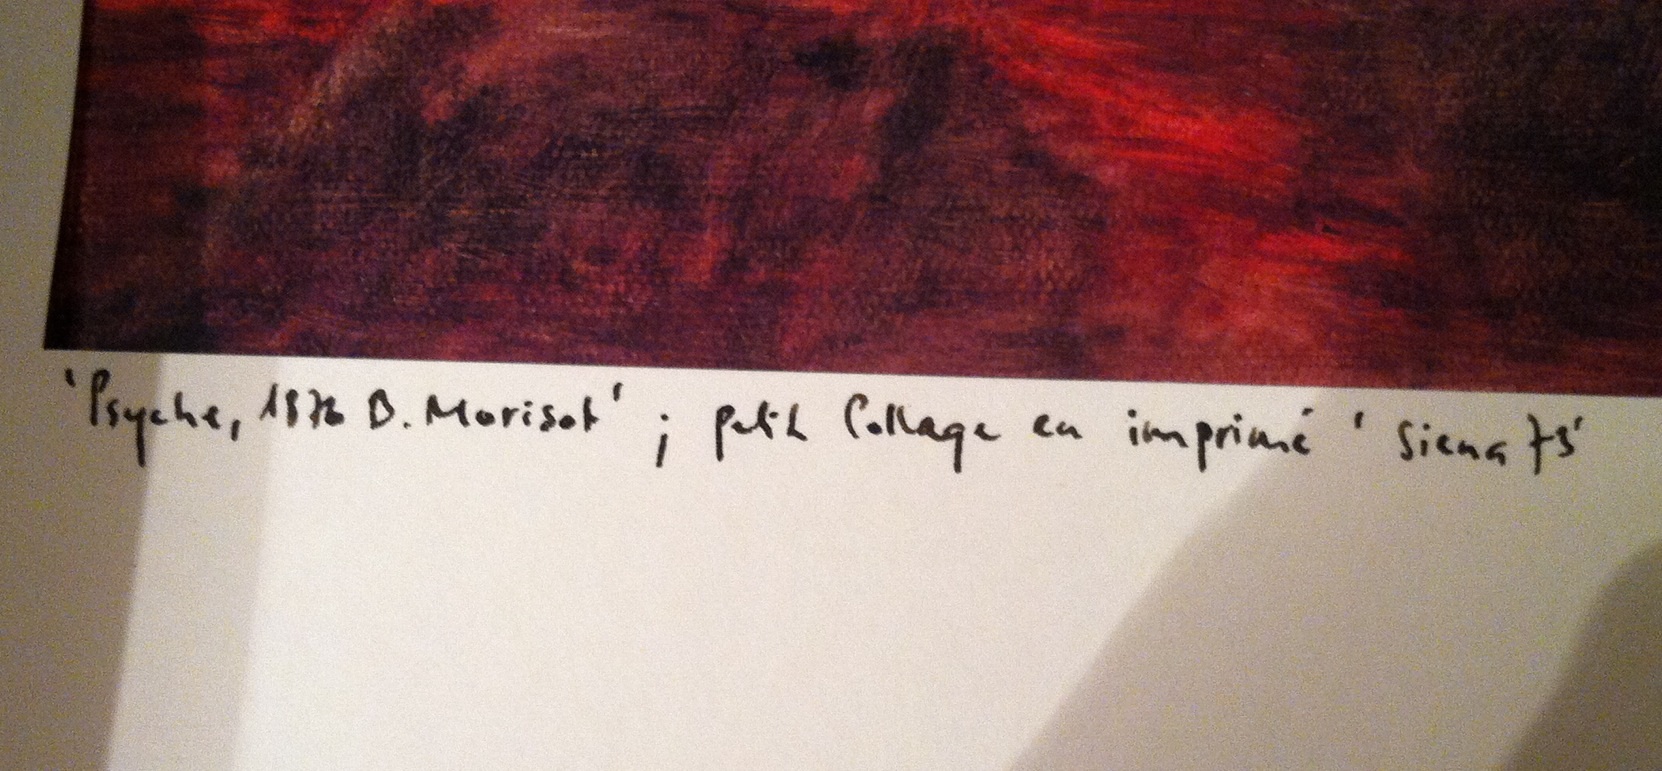 'Psyche, 1876 B. Morisot' ; petit Collage en imprimé ' Siena 73'